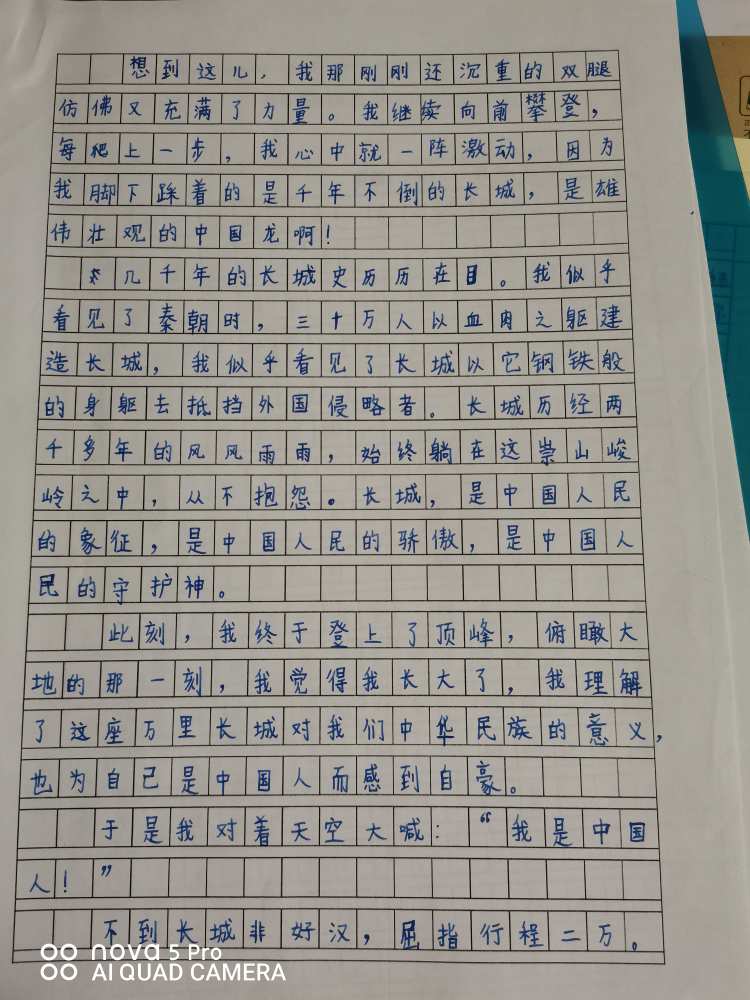 想到这儿，我那刚刚还沉重的双腿
仿佛又充满了力量。我继续向前攀登，
每爬上一步，我心中就一阵激动，因为
我脚下踩着的是千年不倒的长城，是雄
伟壮观的中国龙啊！
几千年的长城史历历在目。我似乎
看见了秦朝时，三十万人以血肉之躯建
造长城，我似乎看见了长城以它钢铁般
的身躯去抵挡外国侵略者。长城历经两
千多年的风风雨雨，始终躺在这崇山峻
岭之中，从不抱怨。长城，是中国人民
的象征，是中国人民的骄傲，是中国人
民的守护神。
此刻，我终于登上了顶峰，俯瞰大
地的那一刻，我觉得我长大了，我理解
了这座万里长城对我们中华民族的意义，
也为自己是中国人而感到自豪。
于是我对着天空大喊：“我是中国
人！”
不到长城非好汉，屈指行程二万。
nova 5 Pro
AI QUAD CAMERA